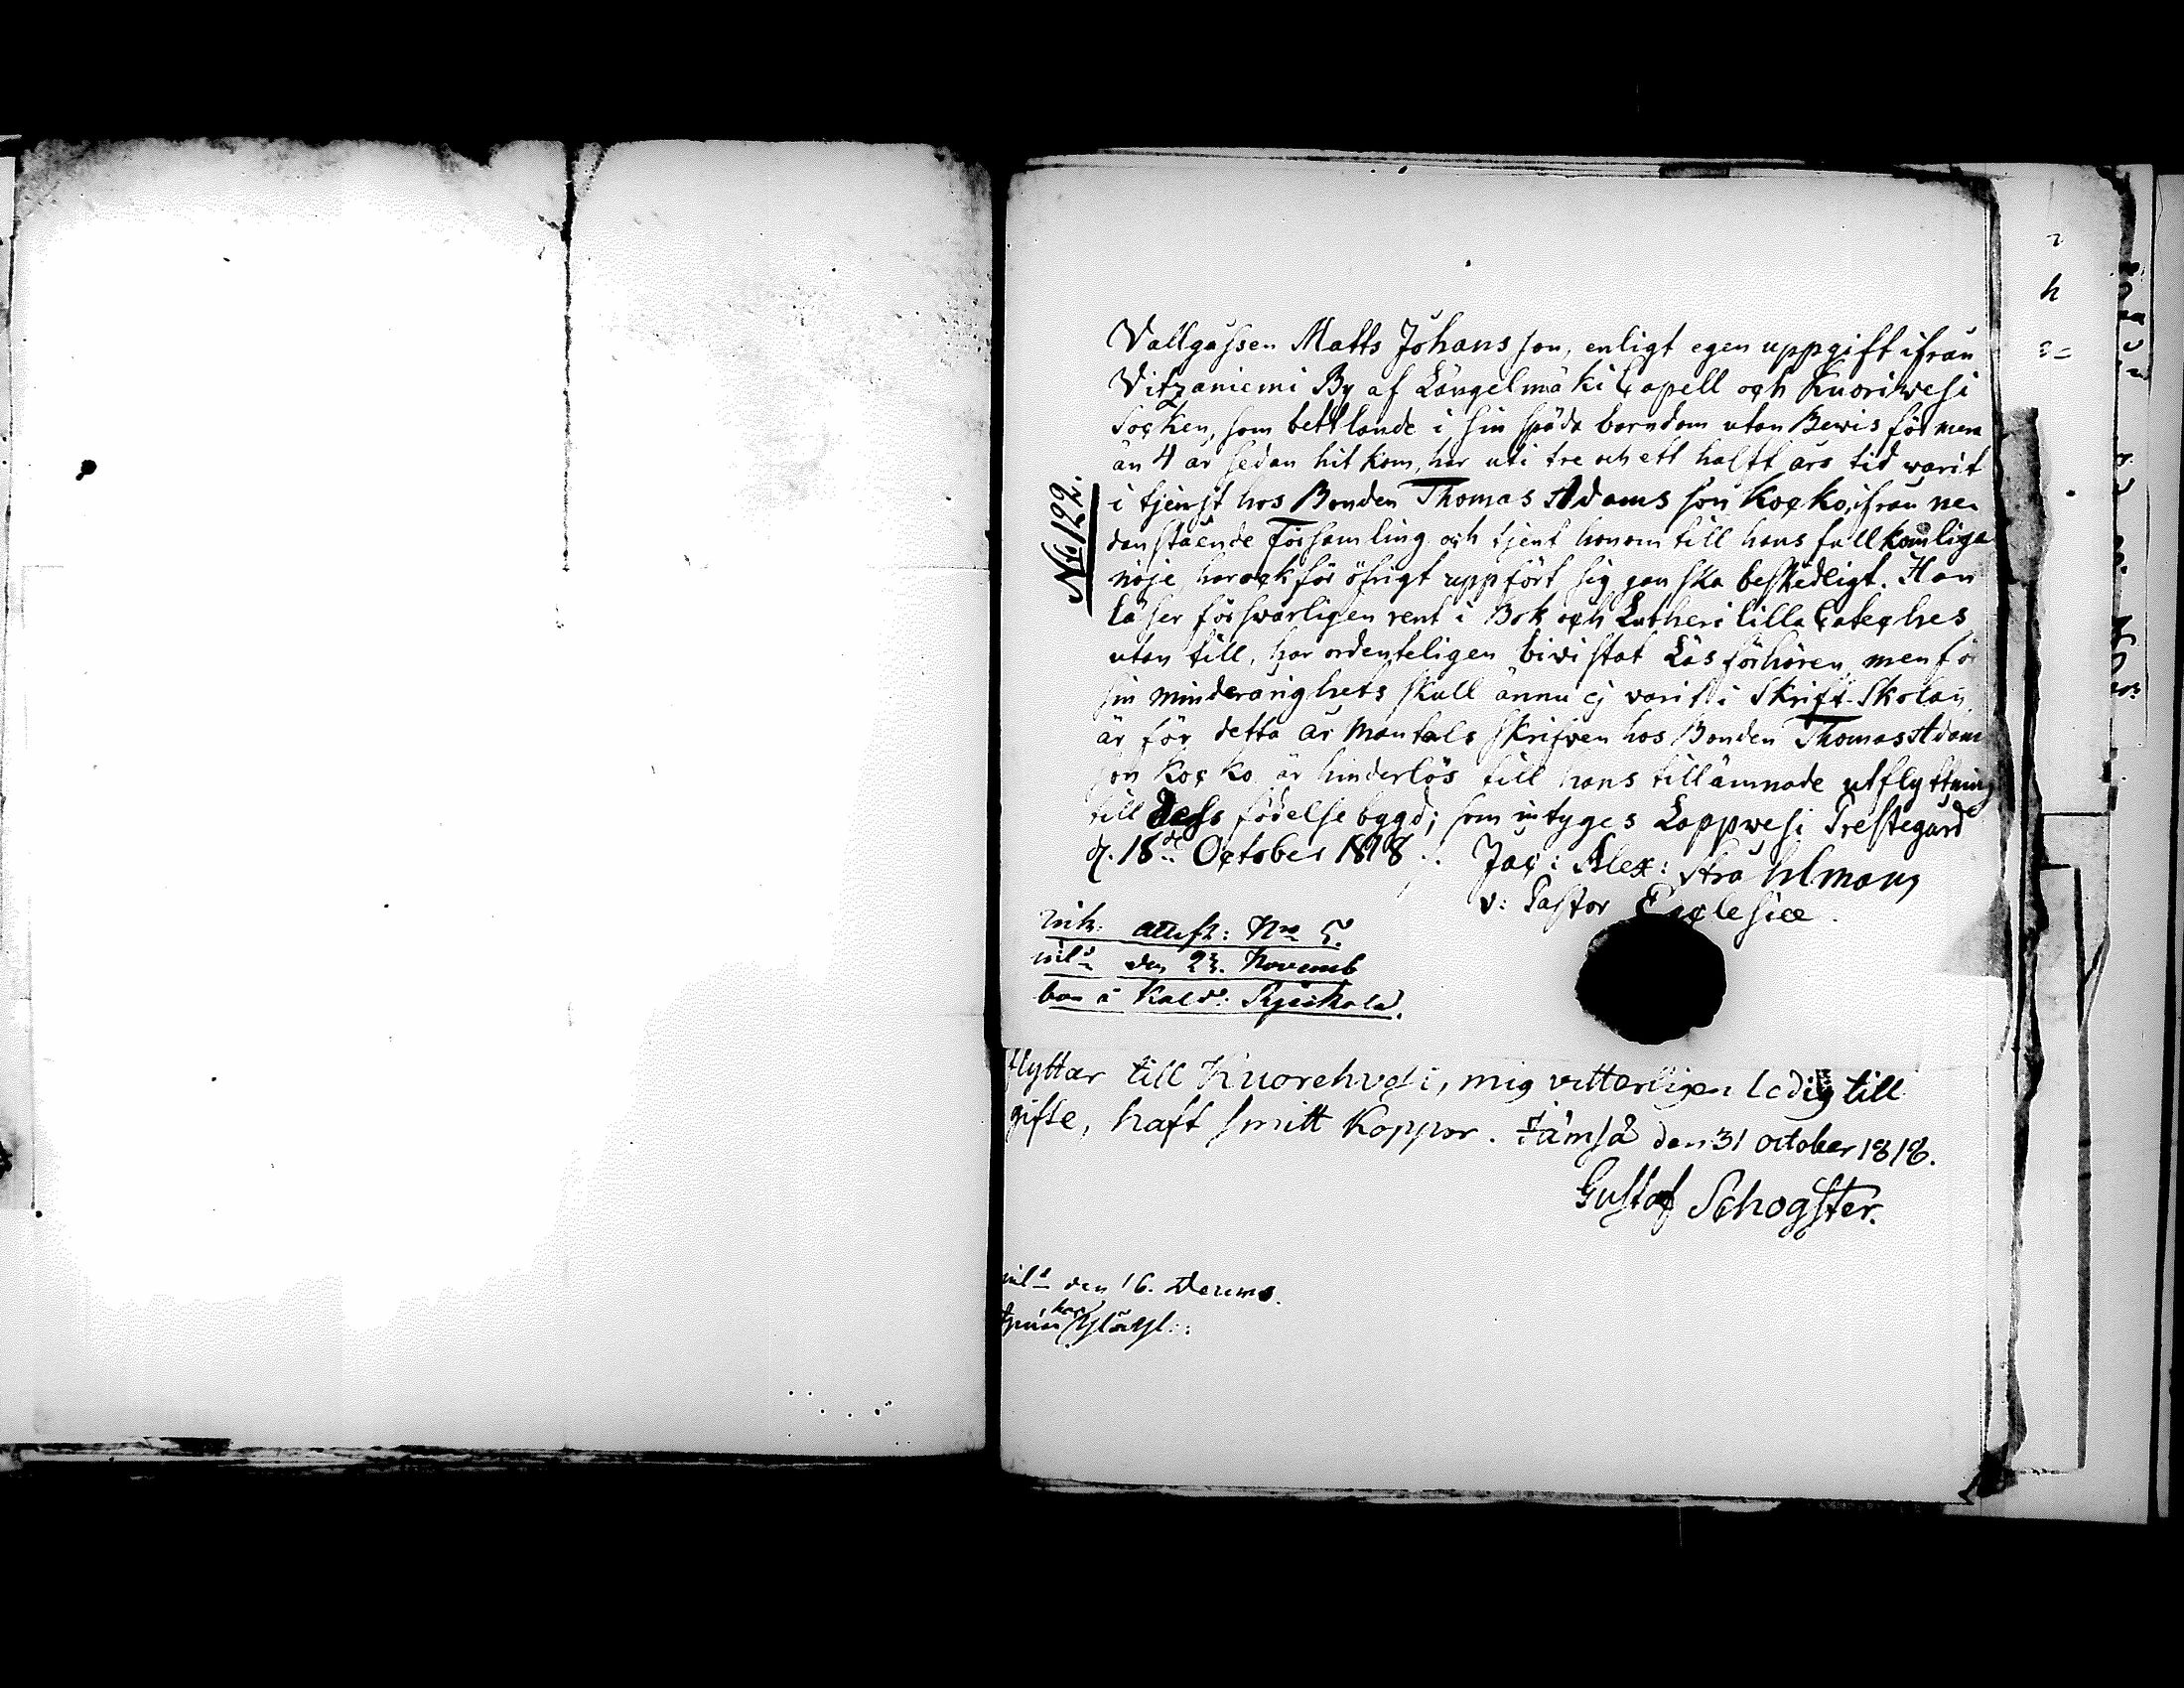 No 122.
Vallgossen Matts Johansson, enligt egen uppgift ifrån
Vitzaniemi By af Längelmäki Capell och Kuoriwesi
Socken, som bettlande i sin späda barndom utan Bewis för mera
än 4 år sedan hit kom, har uti tre och ett halft års tid warit
i tjenst hos Bonden Thomas Adamsson Kocko, ifrån ne-
danstående Församling och tjent honom till hans fullkomliga
nöje, har ock för öfrigt uppfört sig ganska beskedligt. Han
läser förswarligen rent i Bok och Lutheri lilla Cateches
utan till, har ordenteligen biwistat Läsförhören, men för
sin minderårighets skull ännu ej warit i Skrift-Skolan,
är för detta år Mantalsskrifwen hos Bonden Thomas Adams
son Kocko, är hinderlös till hans tillämnade utflyttning
till dess födelsebygd; som intyges Lappwesi Prestegård
d. 18de October 1818. Jac: Alex: Strahlmann
v: Pastor Ecclesiæ.
ink: attest: No 5.
den 23. Novemb
Kald:
flyttar till Kuorehvesi, mig vetterligen ledig till
gifte, haft smitt Koppor. Jämsä den 31 october 1818.
Gustaf Schogster.
den 16.